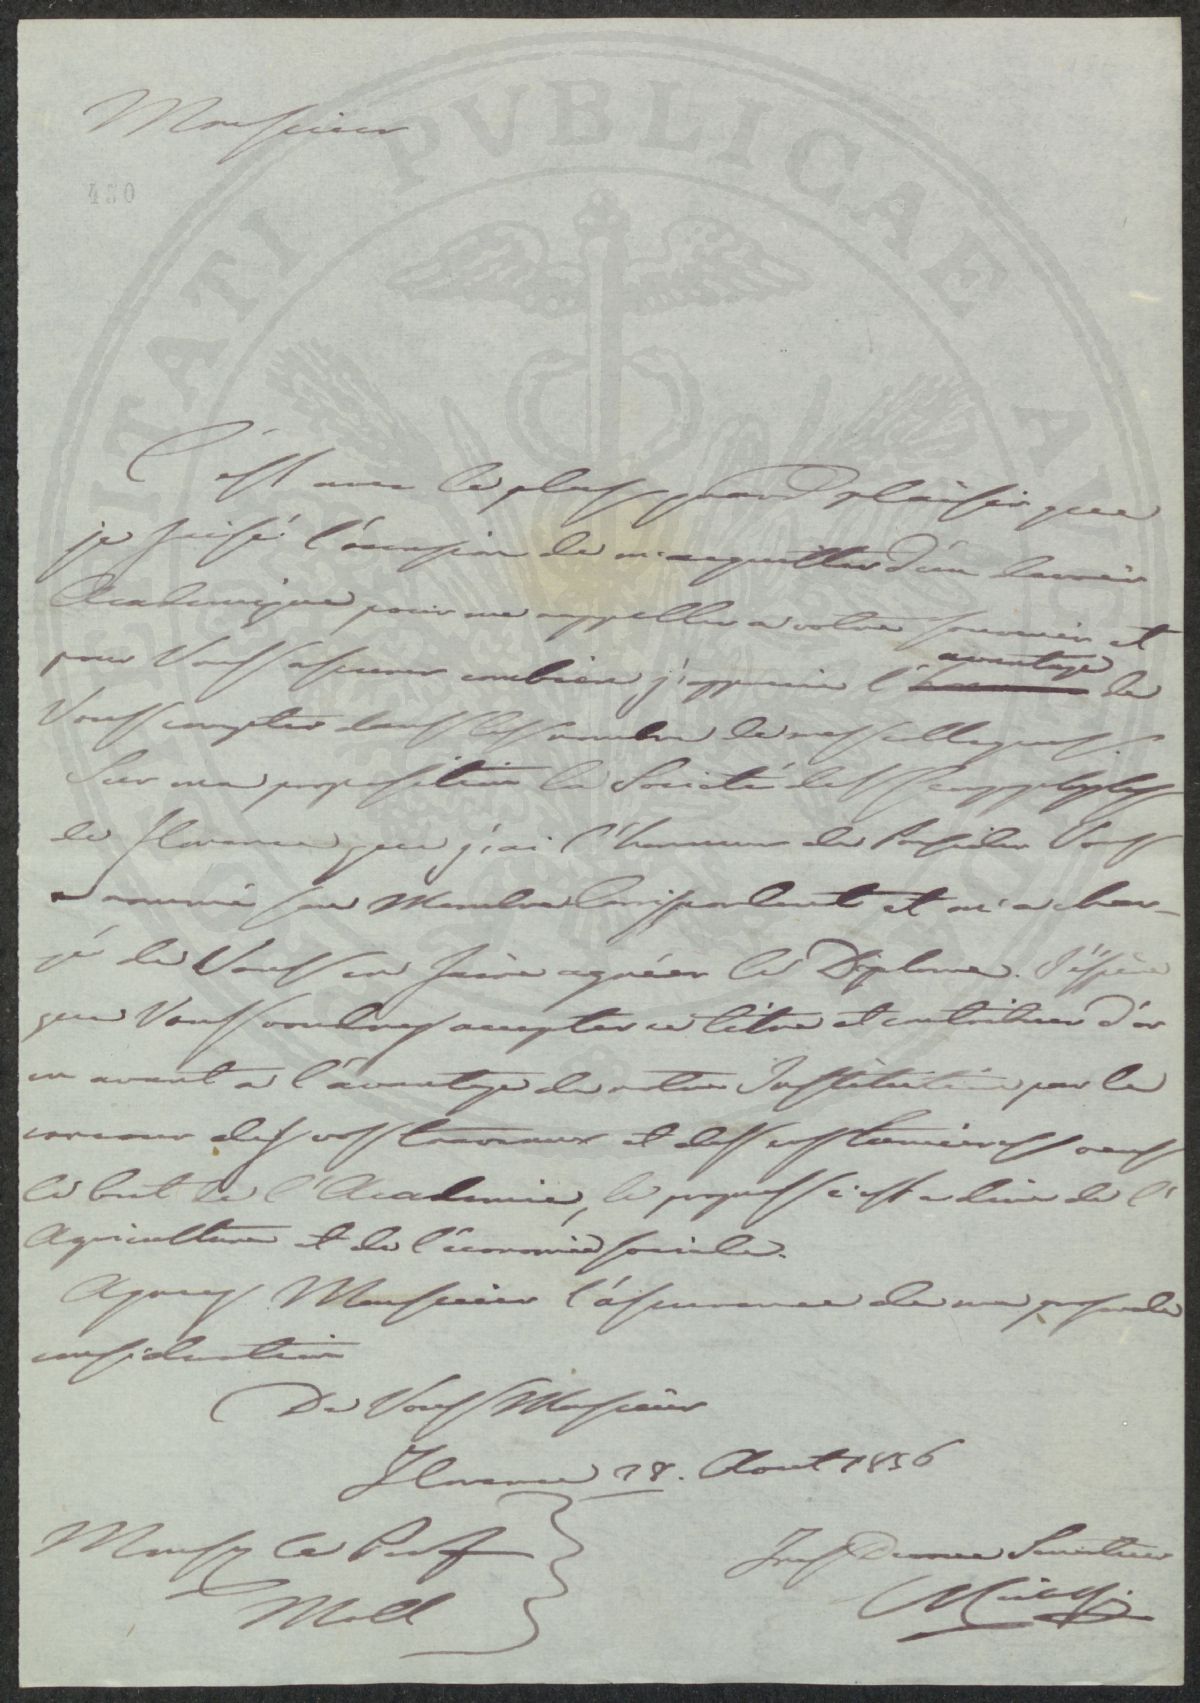 Monsieur
430
PROSPERITATI PVBLICAE AVGENDAE
C'est avec le plus grand plaisir que
je saisé l'occasion de m'acquitter d'un devoir
Academique pour me appeller a votre souvenir et
pour Vous assurer combien j'apprecie l'avantage de
Vous compter dans les nombre de mes collegues.
Sur ma proposition la Societé des Georgophiles
de Florence que j'ai l'honneur de Presider Vous
a nommé son Membre Correspondent et m'a char-
gé de Vous en faire agréer le Diplome. J'éspère
que Vous voudres accepter ce titre et contribuer d'or
en avant a l'avantage de notre Institution par le
concour des vos travaux et des vos lumieres vers
le but de l'Academie, le progress c'est a dire de l'
Agriculture et de l'économie sociale.
Agrees Monsieur l'assurance de ma profonde
consideration
De Vous Monsieur
Florence 28. Aout 1856
Monsr le Prof
Moll
Serviteur